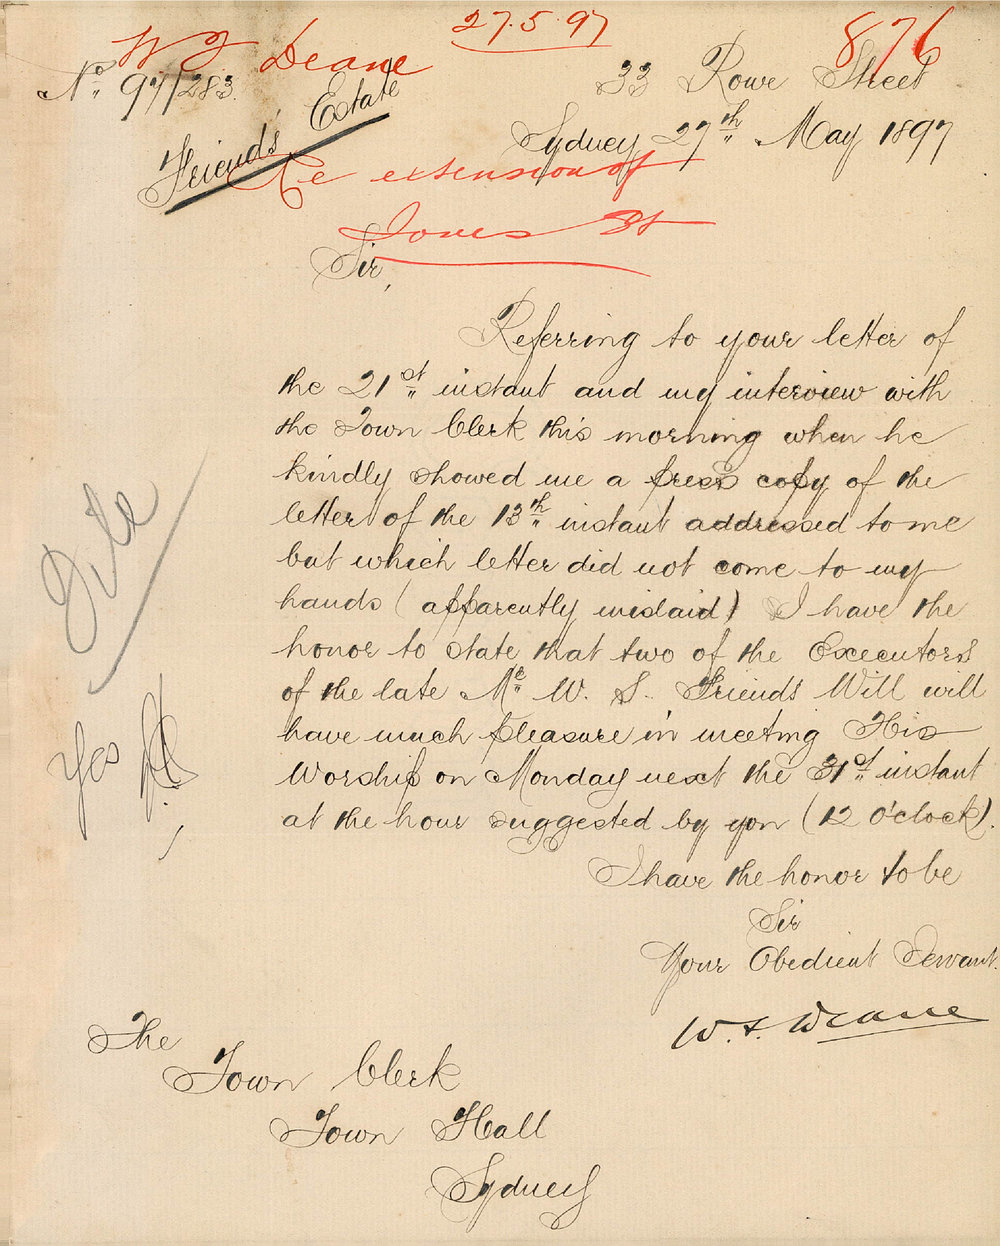 27.5.97
876
W J Deane
33 Rowe Street
No. 97/283.
Sydney 27th May 1897
Friends' Estate
Re extension of
Jones St
Sir,
Referring to your letter of
the 21st instant and my interview with
the Town Clerk this morning when he
kindly showed me a press copy of the
letter of the 13th instant addressed to me
but which letter did not come to my
hands (apparently mislaid) I have the
honor to state that two of the Executors
of the late Mr. W. S. Friends Will will
have much pleasure in meeting His
Worship on Monday next the 31st instant
at the hour suggested by you (12 o'clock).
I have the honor to be
Sir
Your Obedient Servant.
W. J. Deane
The
Town Clerk
Town Hall
Sydney
Yes